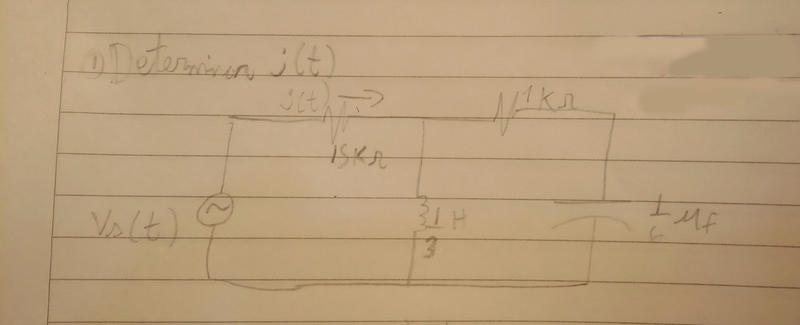 1) Determinen i(t)
i(t) →
1KΩ
15KΩ
Vs(t)
1/3 H
1/6 Mf